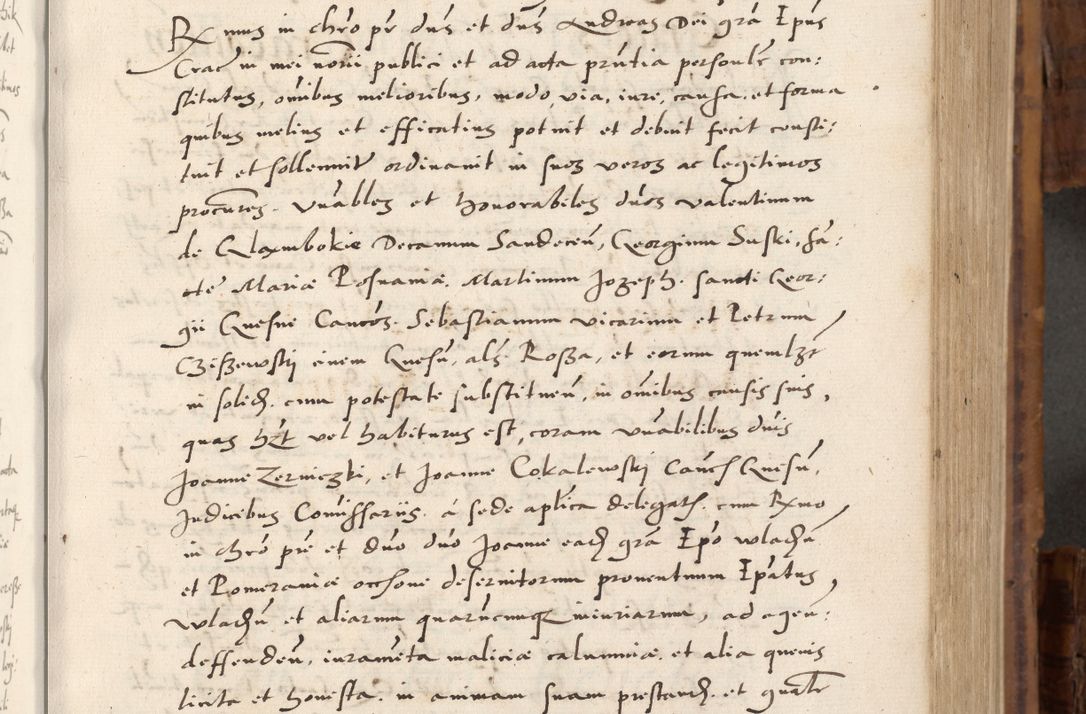 Rx mus in chro pr dns et dns Andreas Dei gra Epus
Crac in mei norii publici et ad acta prntia personlr con:
stitutus, omibus melioribus, modo, via, iure, causa, et forma
quibus melius et efficatius potuit et debuit fecit consti:
tuit et sollenniter ordinavit in suos veros ac legitimos
procures. Vnables et honorabiles dnos Valentinum
de Glambokie Decanum Sandecen, Georgium Suski, Sa:
cte Mariæ Posnaniæ. Martinum Jozeph. sancti Geor:
gii Gnesne Cancos. Sebastianum vicarium et Petrum
Czissewskj civem Gnesn, als Rossa, et eorum quemlzt
in solid. cum potestate substituen, in omibus causis suis,
quas hzt vel habiturus est, coram vnabilibus dnis
Joanne Zerniczki, et Joanne Cokalewskj Canc Gnesn,
Judicibus Comissariis. à sede aplica delegats. cum Rxmo
in chro pre et dno dno Joanne ead gra Epo Wladn
et Pomeraniæ occione deservitorum proventuum Epatus,
Wladn et aliarum quarucumq iniuriarum, ad agen:
deffenden, iuramenta maliciæ calumniæ. et alia quevis
licita et honesta. in animam suam prestand. et qualr